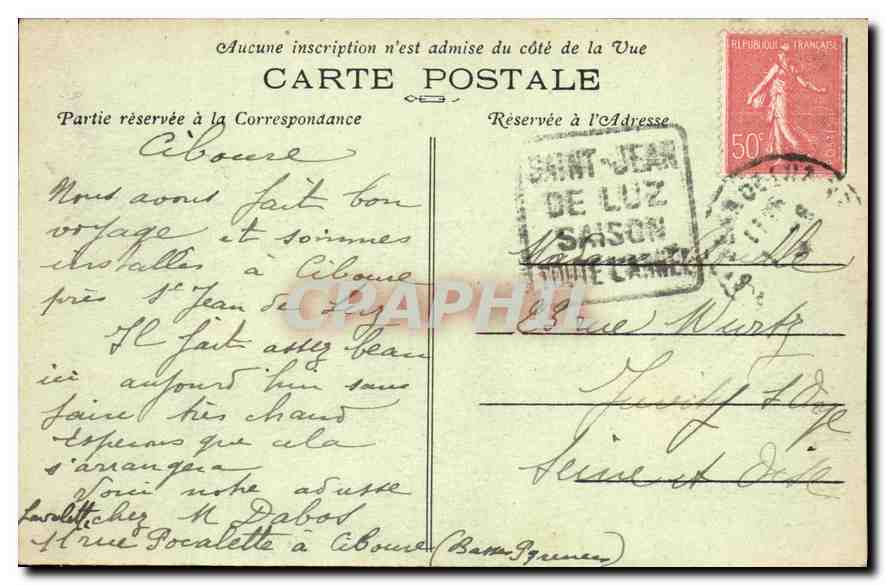 Aucune inscription n'est admise du côté de la Vue
CARTE POSTALE
Partie réservée à la Correspondance
Réservée à l'Adresse
REPUBLIQUE FRANÇAISE
50c
POSTES
SAINT-JEAN
DE LUZ
SAISON
TOUTE L'ANNEE
Ciboure
Nous avons fait bon
voyage et sommes
installés à Ciboure
près St Jean de Luz
Il fait assez beau
ici aujourd'hui sans
faire très chaud
Esperons que cela
s'arrangera
Voici notre adresse
chez M Dabos
11 rue Pocalette à Ciboure (Basses Pyrenees)
Madame
23 rue Wurtz
Juvisy s Orge
Seine et Oise
CPAPHIL